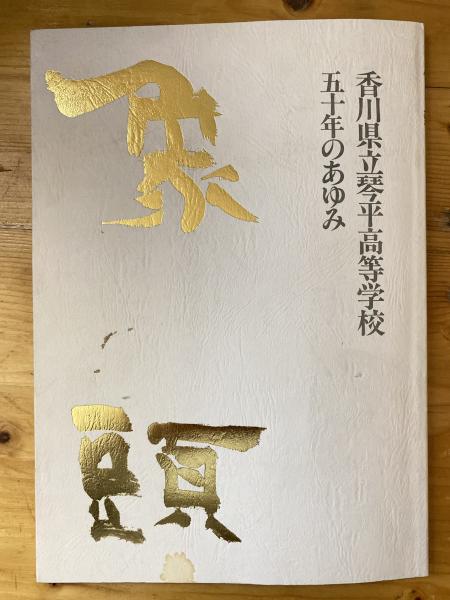 香川県立琴平高等学校
五十年のあゆみ
象頭